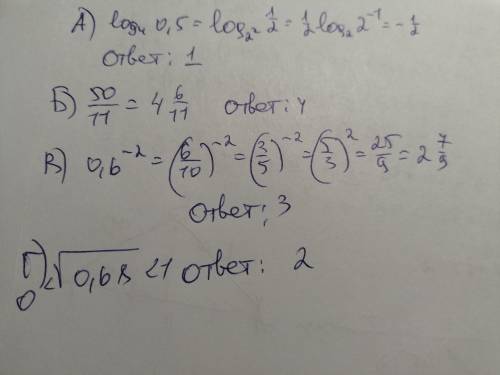 А) log₄ 0,5 = log₂² 1/2 = 1/2 log₂ 2⁻¹ = -1/2
Ответ: 1
Б) 50/11 = 4 6/11 ответ: 4
В) 0,6⁻² = (6/10)⁻² = (3/5)⁻² = (5/3)² = 25/9 = 2 7/9
Ответ: 3
Г) 0<√0,68 <1 Ответ: 2